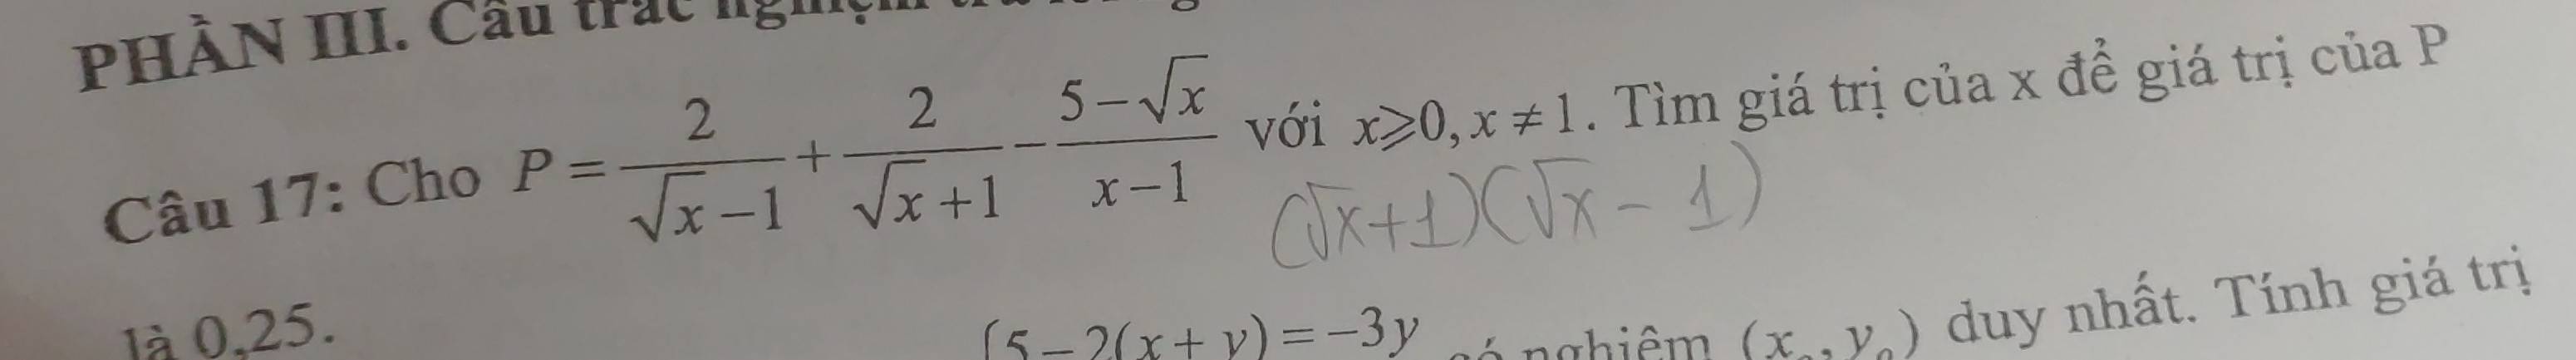 PHẦN III. Câu trắc nghiệm
Câu 17: Cho P = \frac{2}{\sqrt{x}-1} + \frac{2}{\sqrt{x}+1} - \frac{5-\sqrt{x}}{x-1} với x⩾0, x ≠ 1. Tìm giá trị của x để giá trị của P
(√x+1)(√x - 1)
là 0,25.
{5-2(x+y)=-3y có nghiệm (x₀, y₀) duy nhất. Tính giá trị